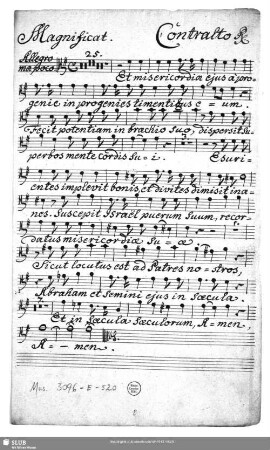 Magnificat. Contralto R
Allegro 25.
ma poco
Et misericordia ejus a pro=
genie in progenies timentibus e=um.
Fecit potentiam in brachio Suo, dispersit Su=
perbos mente cordis Su=i. Esuri=
entes implevit bonis, et divites dimisit ina=
nes. Suscepit Israël puerum Suum, recor=
datus misericordiæ Su=æ
Sicut locutus est ad Patres no=stros,
Abraham et Semini ejus in Sæcula.
Et in Sæcula Sæculorum, A=men,
A=-men.
Mus. 3096-E-520
SLUB